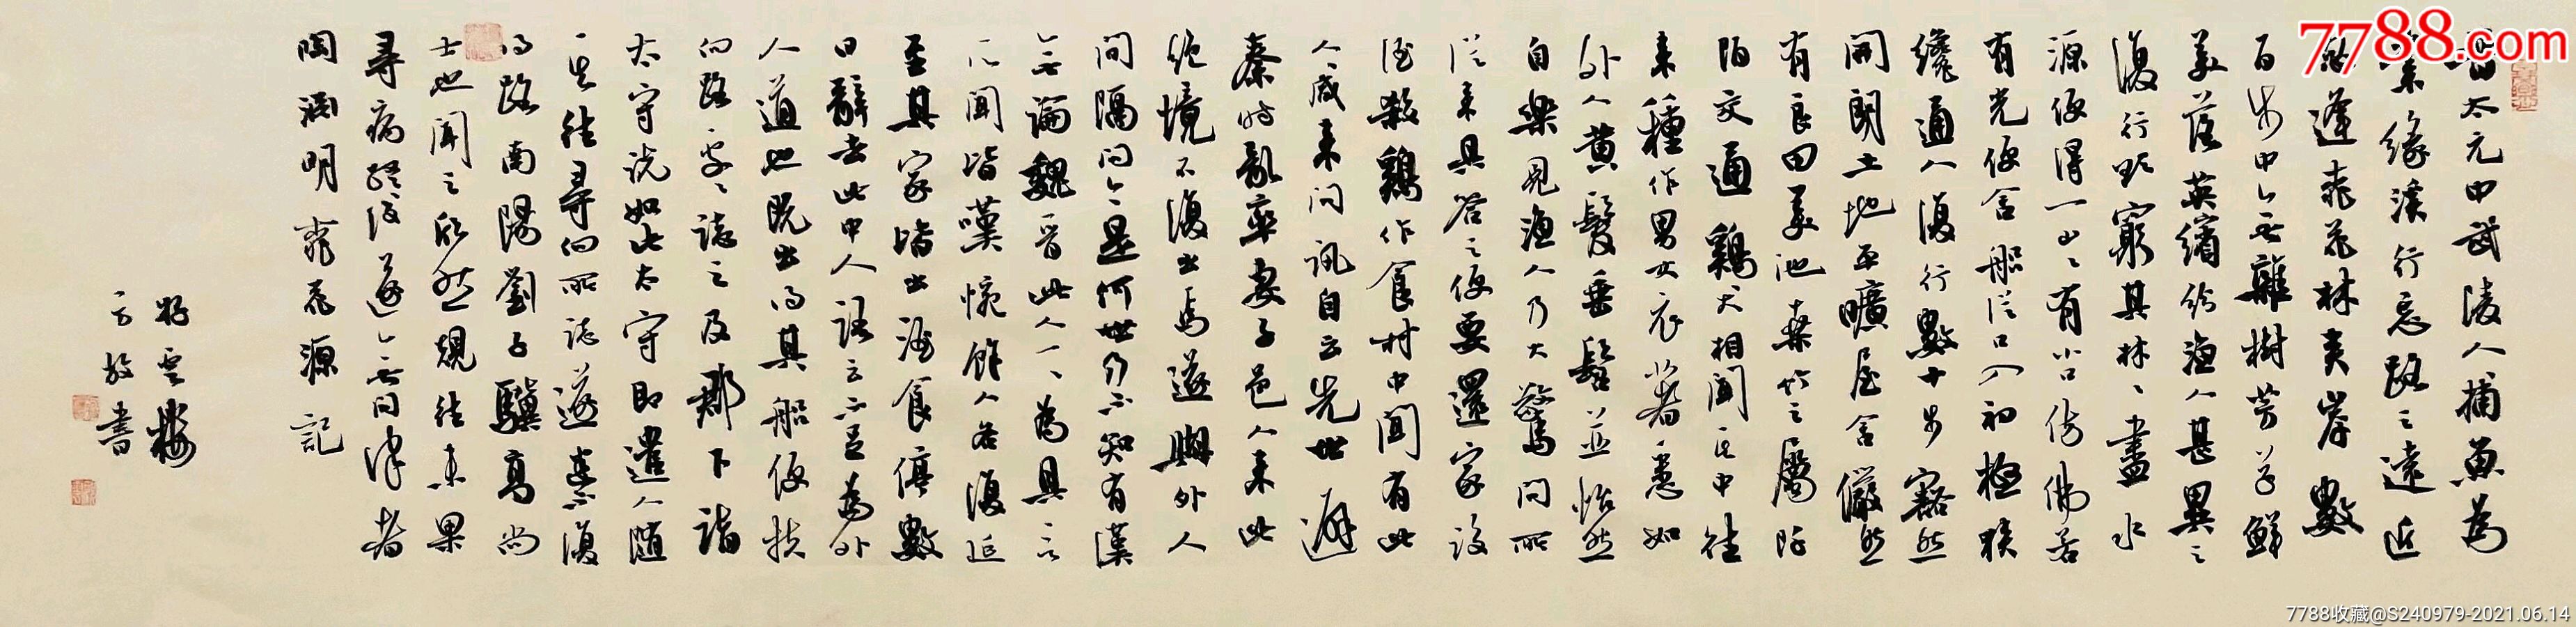 晉太元中武陵人捕魚為
業緣溪行忘路之遠近
忽逢桃花林夾岸數
百步中無雜樹芳草鮮
美落英繽紛漁人甚異之
復行欲窮其林、盡水
源便得一山、有小口彷彿若
有光便舍船從口入初極狹
纔通人復行數十步豁然
開朗土地平曠屋舍儼然
有良田美池桑竹之屬阡
陌交通鷄犬相聞其中往
來種作男女衣著悉如
外人黃髮垂髫並怡然
自樂見漁人乃大驚問所
從來具答之便要還家設
酒殺鷄作食村中聞有此
人咸來問訊自云先世避
秦時亂率妻子邑人來此
絕境不復出焉遂與外人
間隔問今是何世乃不知有漢
無論魏晉此人一、為具言
所聞皆嘆惋餘人各復延
至其家皆出酒食停數
日辭去此中人語云不足為外
人道也既出得其船便扶
向路處、誌之及郡下詣
太守說如此太守即遣人隨
其往尋向所誌遂迷不復
得路南陽劉子驥高尚
士也聞之欣然規往未果
尋病終後遂無問津者
陶淵明桃花源記
雲樓
書
7788.com
7788收藏@S240979-2021.06.14